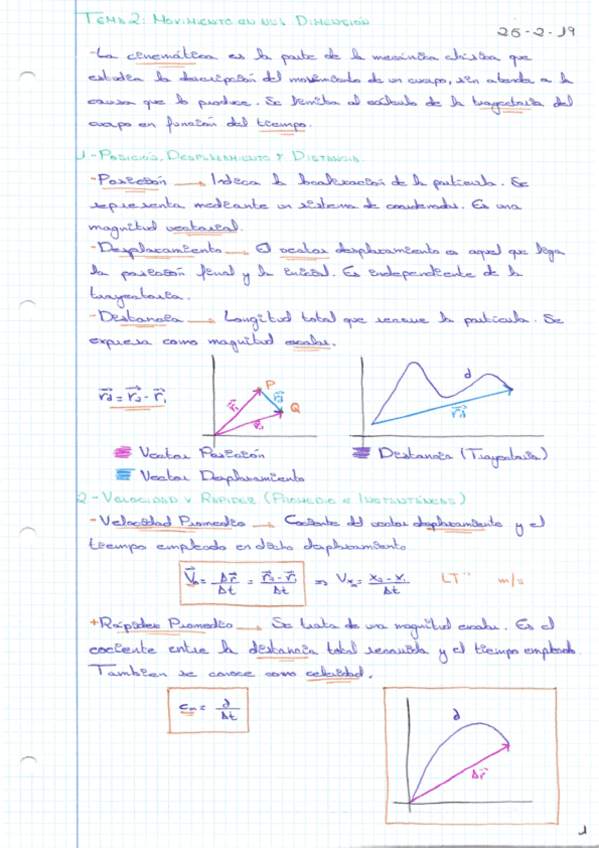 TEMA 2: MOVIMIENTO EN UNA DIMENSIÓN
26-2-19
-La cinemática es la parte de la mecánica clásica que
estudia la descripción del movimiento de un cuerpo, sin atender a la
causa que lo produce. Se limita al cálculo de la trayectoria del
cuerpo en función del tiempo.
1-POSICIÓN, DESPLAZAMIENTO Y DISTANCIA.
-Posición → Indica la localización de la partícula. Se
representa mediante un sistema de coordenadas. Es una
magnitud vectorial.
-Desplazamiento → El vector desplazamiento es aquel que liga
la posición final y la inicial. Es independiente de la
trayectoria.
-Distancia → Longitud total que recorre la partícula. Se
expresa como magnitud escalar.
r⃗d = r⃗2 - r⃗1
P
Q
r⃗1
r⃗d
r⃗2
d
r⃗d
Vector Posición
Distancia (Trayectoria)
Vector Desplazamiento
2-VELOCIDAD Y RAPIDEZ (PROMEDIO E INSTANTÁNEAS)
-Velocidad Promedio → Cociente del vector desplazamiento y el
tiempo empleado en dicho desplazamiento
= Δr⃗/Δt = r⃗2 - r⃗1/Δt ⇒ = x2 - x1/Δt LT⁻¹ m/s
+Rápidez Promedio → Se trata de una magnitud escalar. Es el
cociente entre la distancia total recorrida y el tiempo empleado.
Tambien se conoce como celeridad.
cm = d/Δt
d
Δr⃗
1